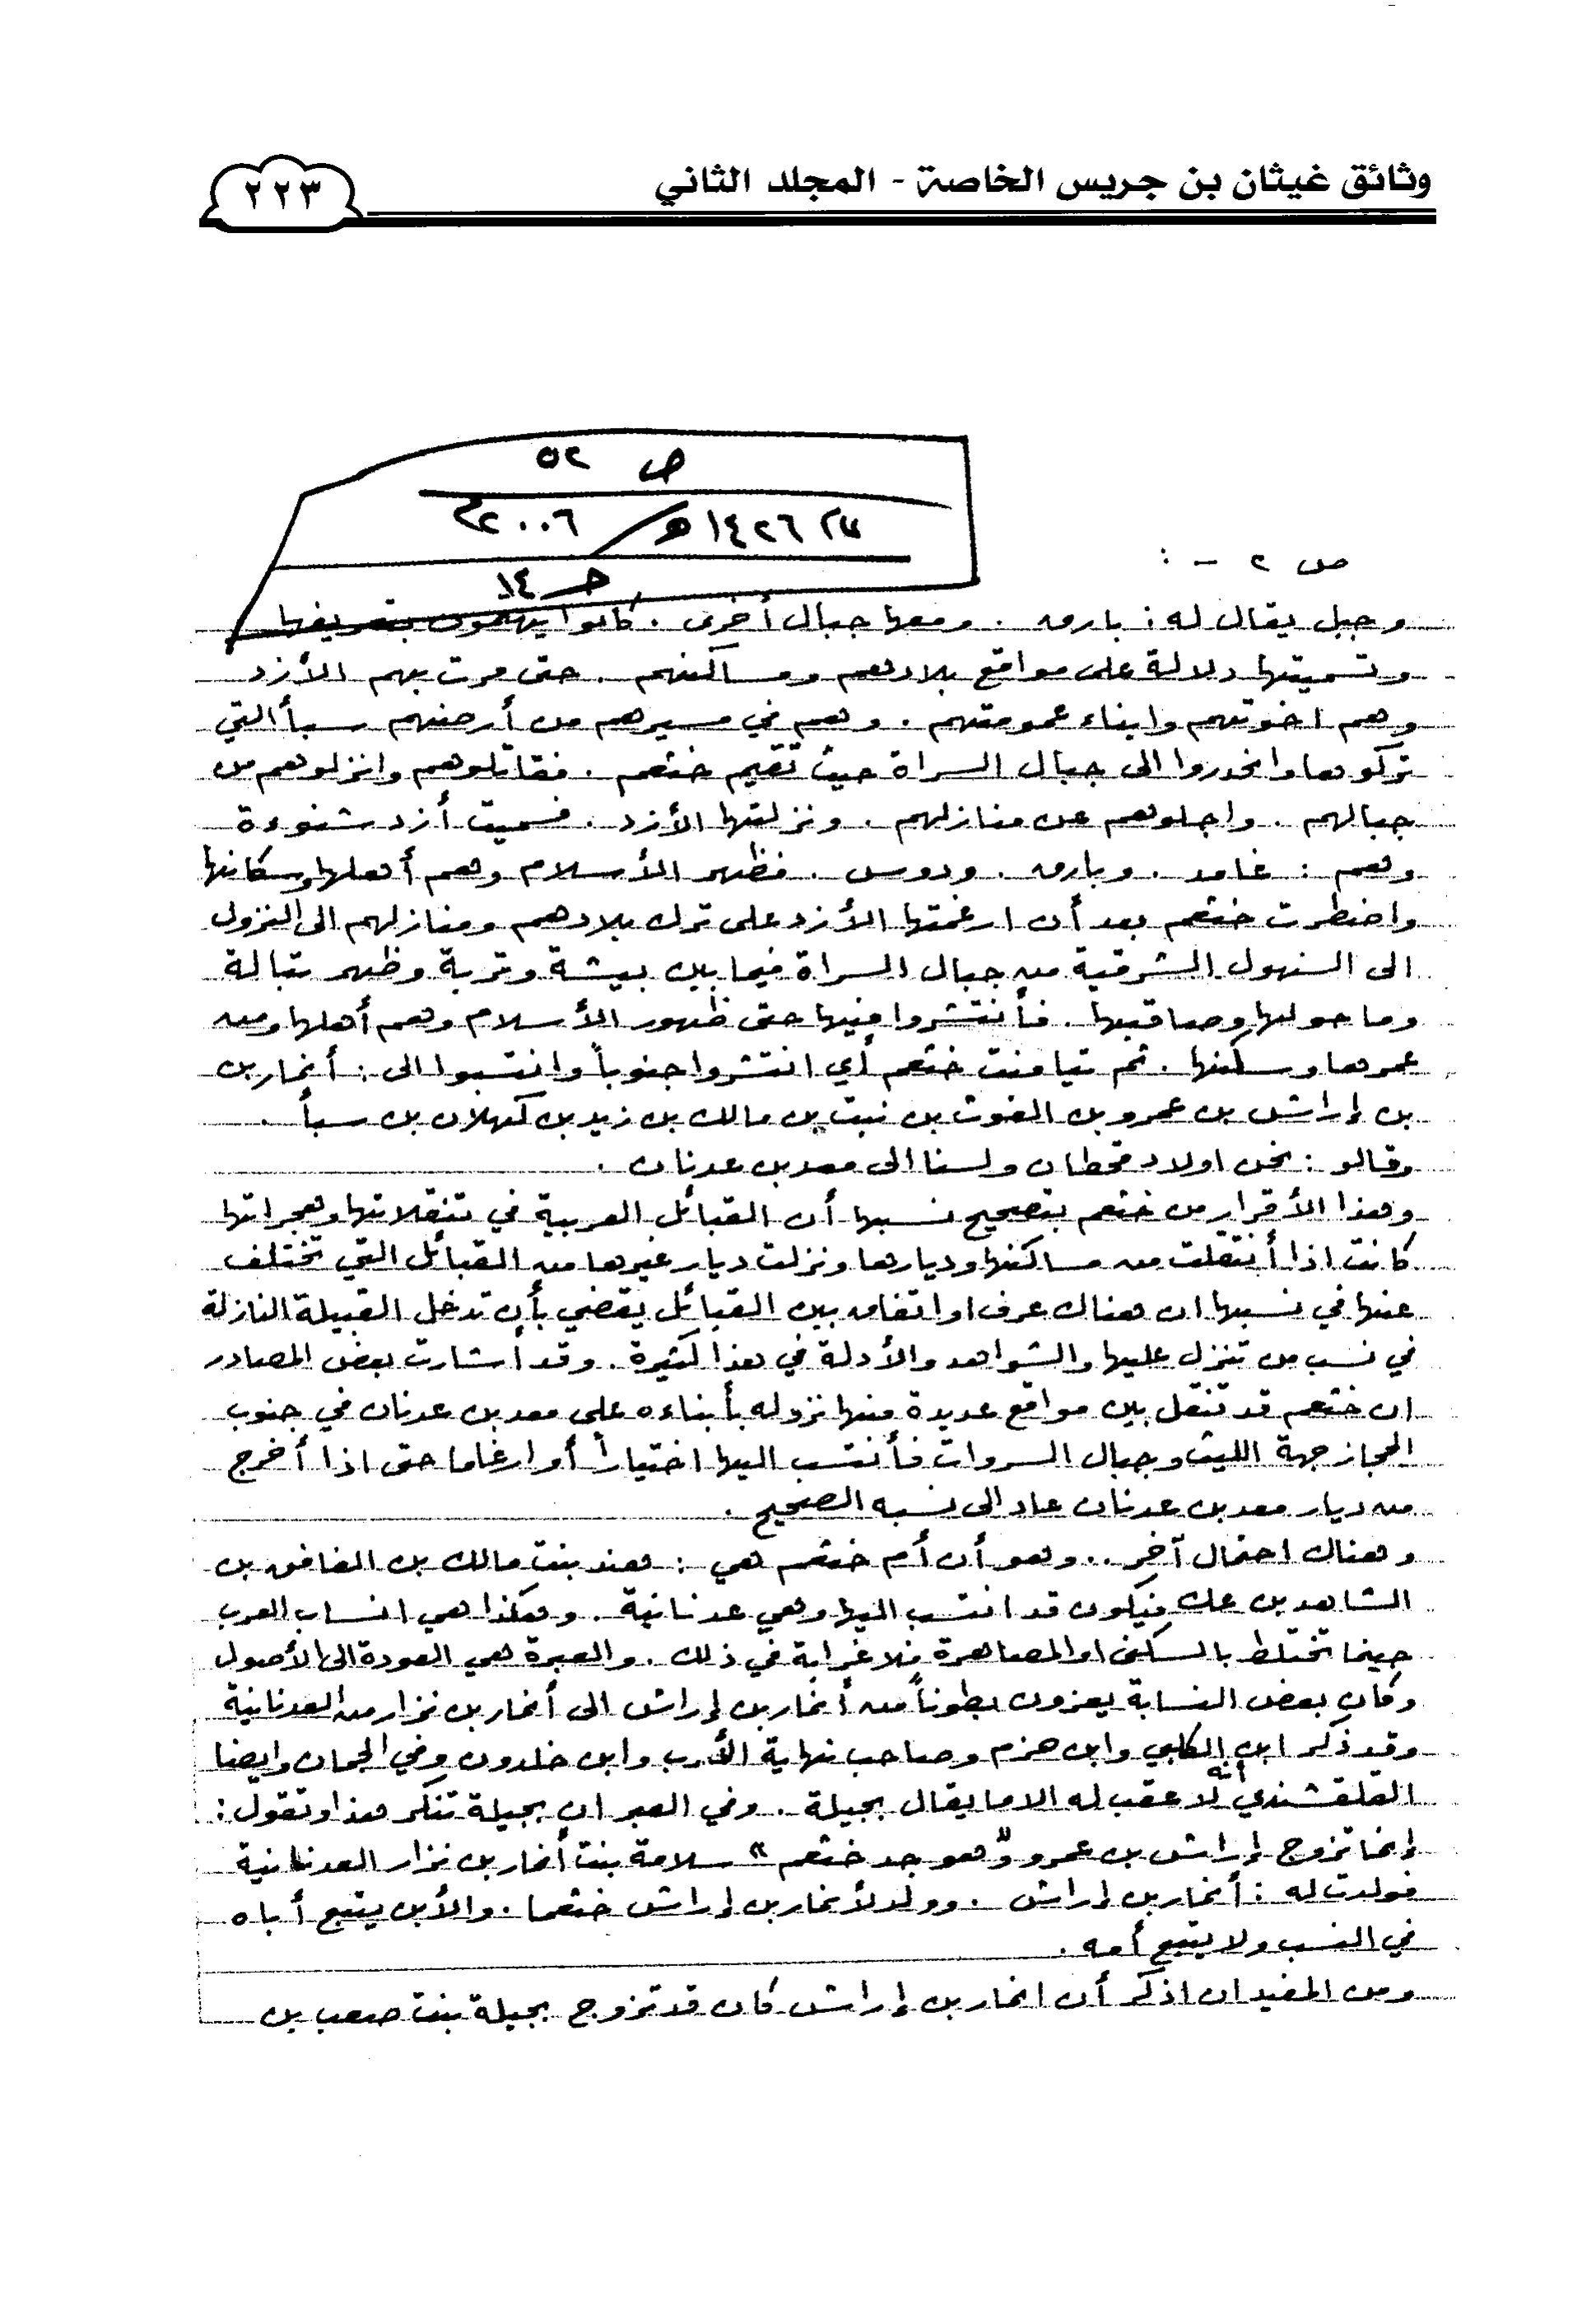 وثائق غيثان بن جريس الخاصة - المجلد الثاني
٢٢٣
ص ٥٢
١٤٢٦هـ / ٢٠٠٦م
حـ ١٤
ص ٢ - :
وجبل يقال له : بارق . ومعها جبال أخرى . كانوا يهتمون بتعريفها
وتسميتها دلالة على مواقع بلادهم ومساكنهم . حتى مرت بهم الأزد
وهم اخوتهم وابناء عمومتهم . وهم في مسيرهم من أرضهم سبأ التي
تركوها وانحدروا الى جبال السراة حيث تقيم خثعم . فقاتلوهم وانزلوهم من
جبالهم . واجلوهم عن منازلهم . ونزلتها الأزد . فسميت أزد شنوءة
وهم : غامد . وبارق . ودوس . فظهر الأسلام وهم أهلها وسكانها
واضطرت خثعم بعد أن ارغمتها الأزد على ترك بلادهم ومنازلهم الى النزول
الى السهول الشرقية من جبال السراة فيما بين بيشة وتربة وظهر تبالة
وما حولها وصاقبها . فأنتشروا فيها حتى ظهور الأسلام وهم أهلها ومن
عمرها وسكنها . ثم تيامنت خثعم أي انتشروا جنوباً وانتسبوا الى : أنمار بن
بن إراش بن عمرو بن الغوث بن نبت بن مالك بن زيد بن كهلان بن سبأ .
وقالو : نحن اولاد قحطان ولسنا الى معد بن عدنان .
وهذا الأقرار من خثعم بتصحيح نسبها أن القبائل العربية في تنقلاتها وهجراتها
كانت اذا أنتقلت من مساكنها وديارها ونزلت ديار غيرها من القبائل التي تختلف
عنها في نسبها ان هناك عرف او اتفاق بين القبائل يقضي بأن تدخل القبيلة النازلة
في نسب من تنزل عليها والشواهد والأدلة في هذا كثيرة . وقد أشارت بعض المصادر
ان خثعم قد تنقل بين مواقع عديدة منها نزوله بأبناءه على معد بن عدنان في جنوب
الحجاز جهة الليث وجبال السروات فأنتسب اليها اختياراً أو ارغاما حتى اذا أخرج
من ديار معد بن عدنان عاد الى نسبه الصحيح .
وهناك احتمال آخر .. وهو أن أم خثعم هي : هند بنت مالك بن الغافق بن
الشاهد بن عك فيكون قد انتسب اليها وهي عدنانية . وهكذا هي انساب العرب
حينما تختلط بالسكنى او المصاهرة فلا غرابة في ذلك . والعبرة هي العودة الى الأصول
وكان بعض النسابة يعزون بطوناً من أنمار بن إراش الى أنمار بن نزار من العدنانية
وقد ذكر ابن الكلبي وابن حزم وصاحب نهاية الأرب وابن خلدون وفي الجمان وايضا
القلقشندي أنه لا عقب له الا ما يقال بجيلة . وفي العبر ان بجيلة تنكر هذا وتقول :
إنما تزوج إراش بن عمرو « وهو جد خثعم » سلامة بنت أنمار بن نزار العدنانية
فولدت له : أنمار بن إراش . وولد لأنمار بن إراش خثعما . والأبن يتبع أباه
في النسب ولا يتبع أمه .
ومن المفيد ان اذكر أن انمار بن إراش كان قد تزوج بجيلة بنت صعب بن